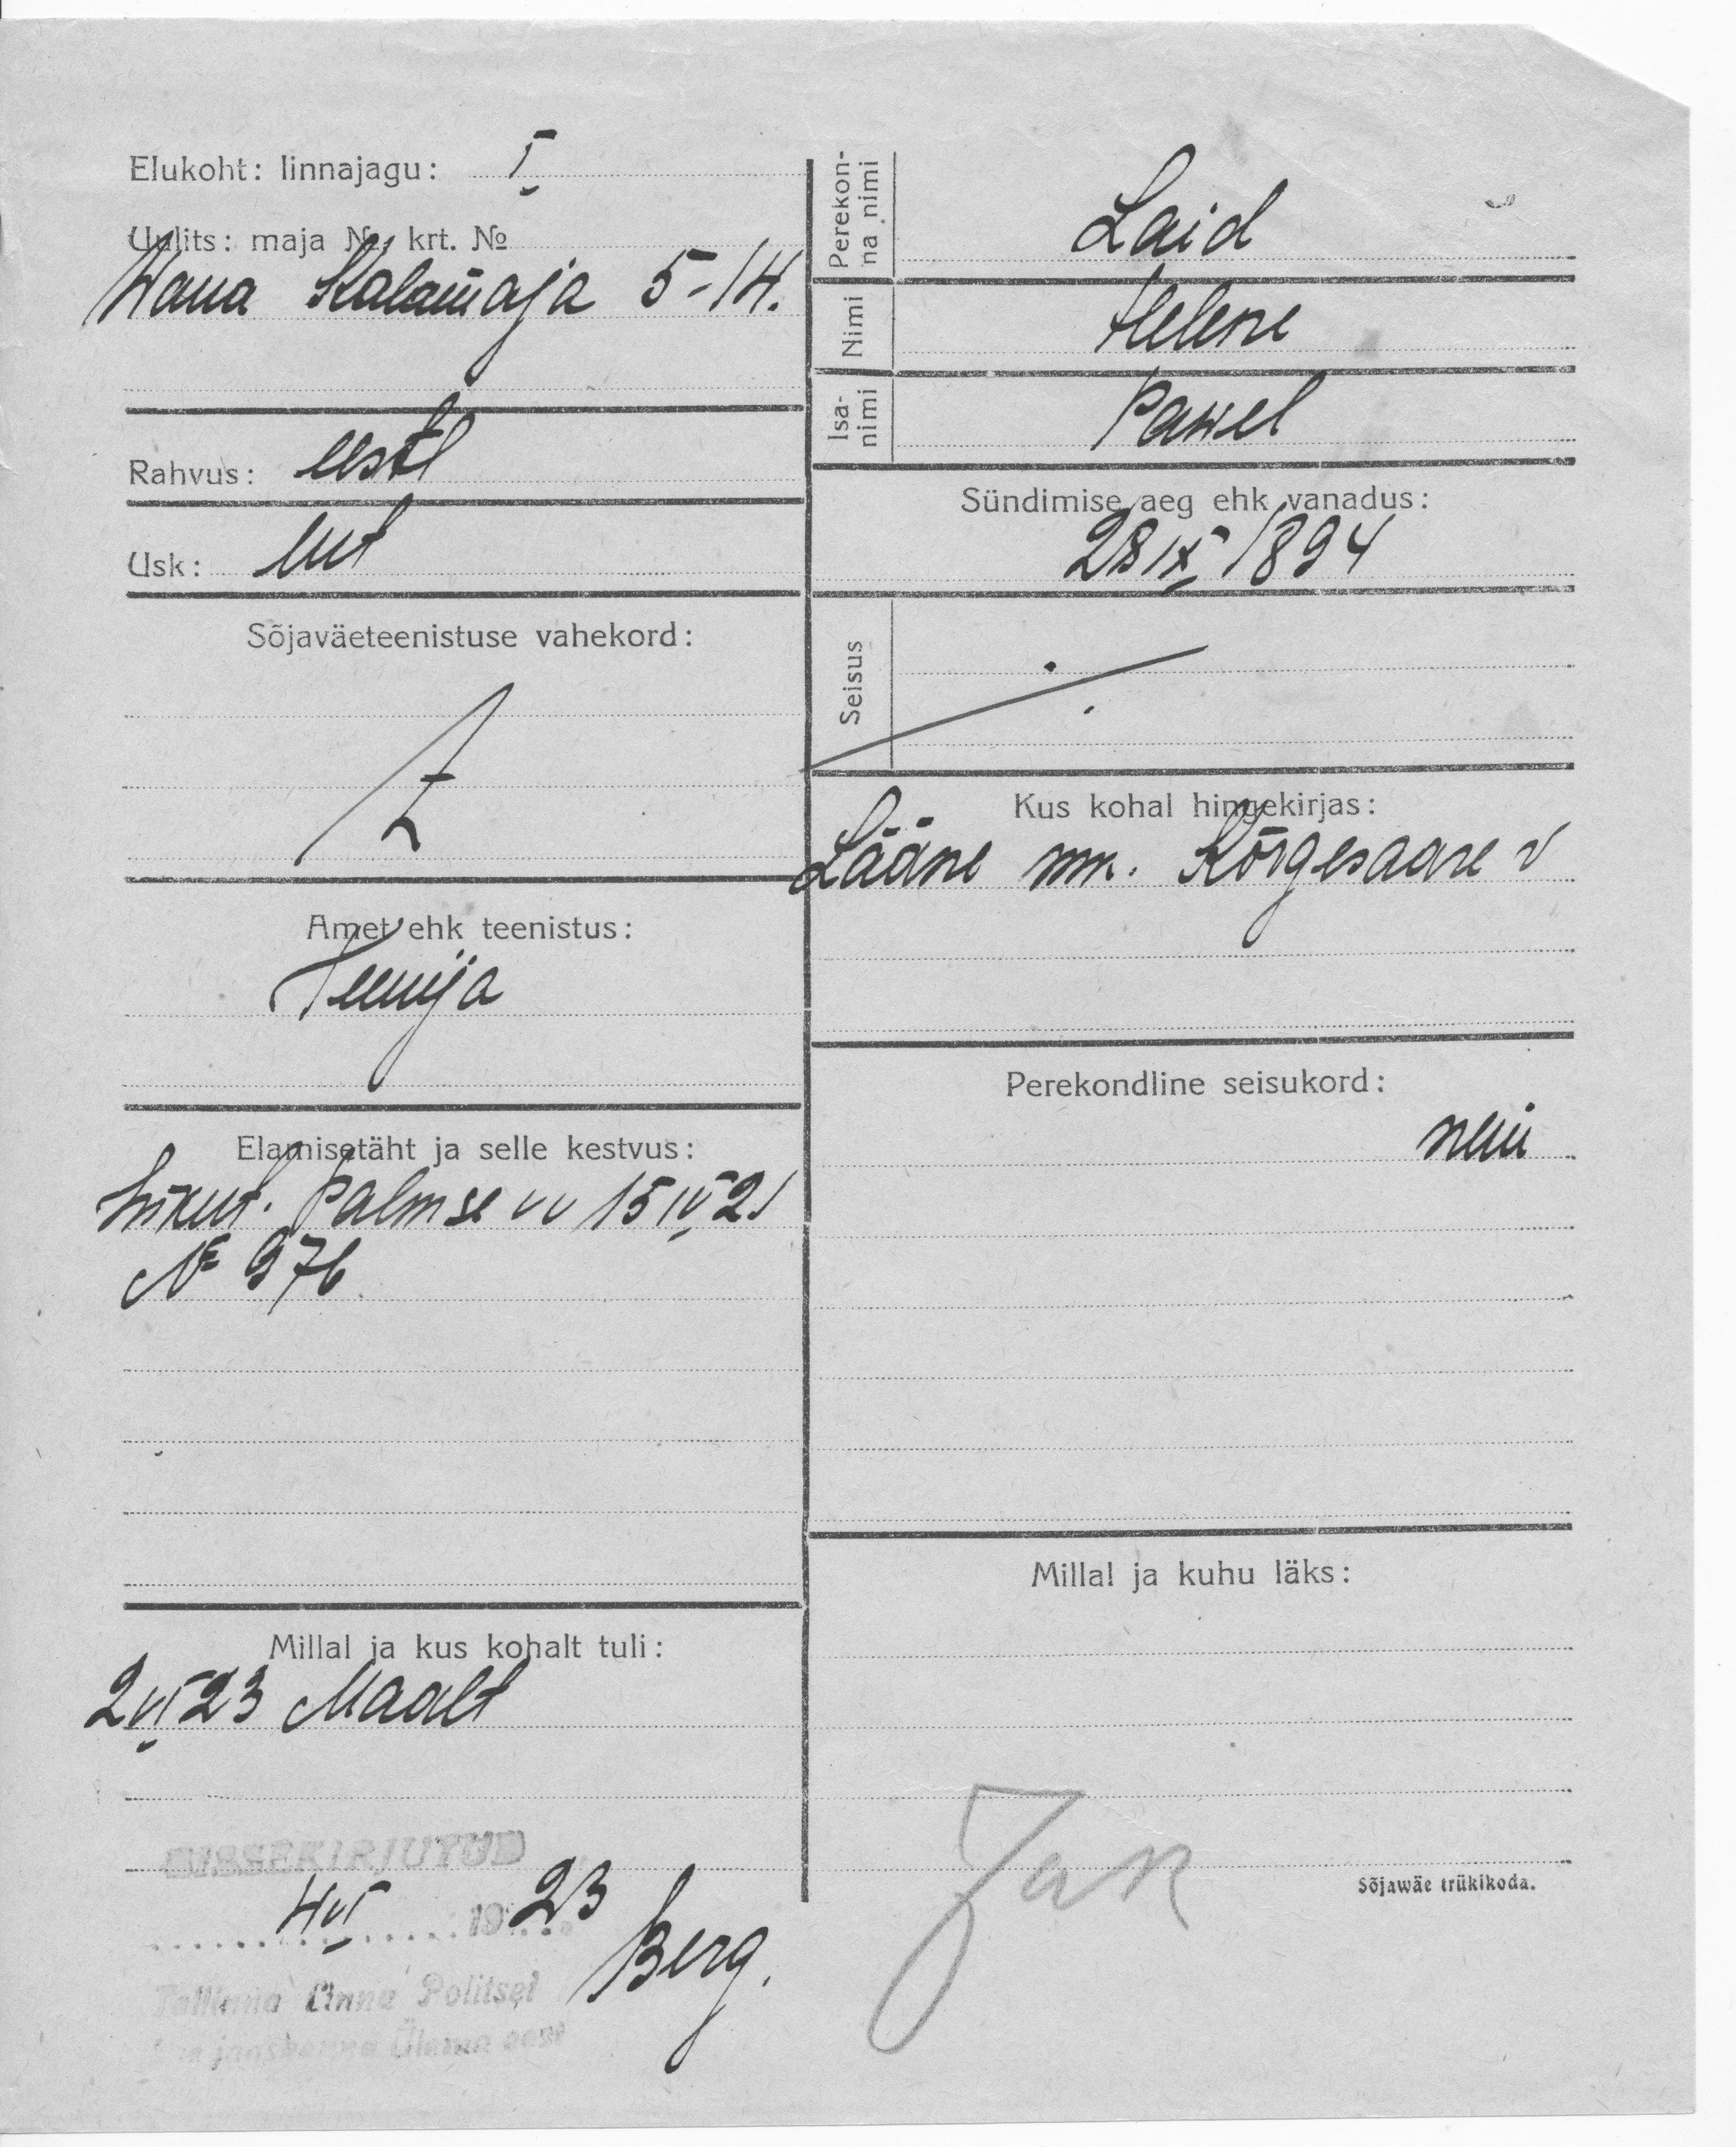 Elukoht: linnajagu: I
Uulits: maja № krt. №
Wana Kalamaja 5-14.
Rahvus: eesti
Usk: lut
Sõjaväeteenistuse vahekord:
Amet ehk teenistus:
Teenija
Elamisetäht ja selle kestvus:
Isikut. Palmse vv 15 IV 21
№ 976
Millal ja kus kohalt tuli:
2 VI 23 Maalt
SISSEKIRJUTUD
4 VI 1923
Berg.
Tallinna Linna Politsei
jaoskonna Ülema eest
Perekonna nimi
Laid
Nimi
Helene
Isanimi
Pawel
Sündimise aeg ehk vanadus:
28 IX 1894
Seisus
Kus kohal hingekirjas:
Lääne mk. Kõrgesaare v
Perekondline seisukord:
neiu
Millal ja kuhu läks:
Jak
Sõjawäe trükikoda.